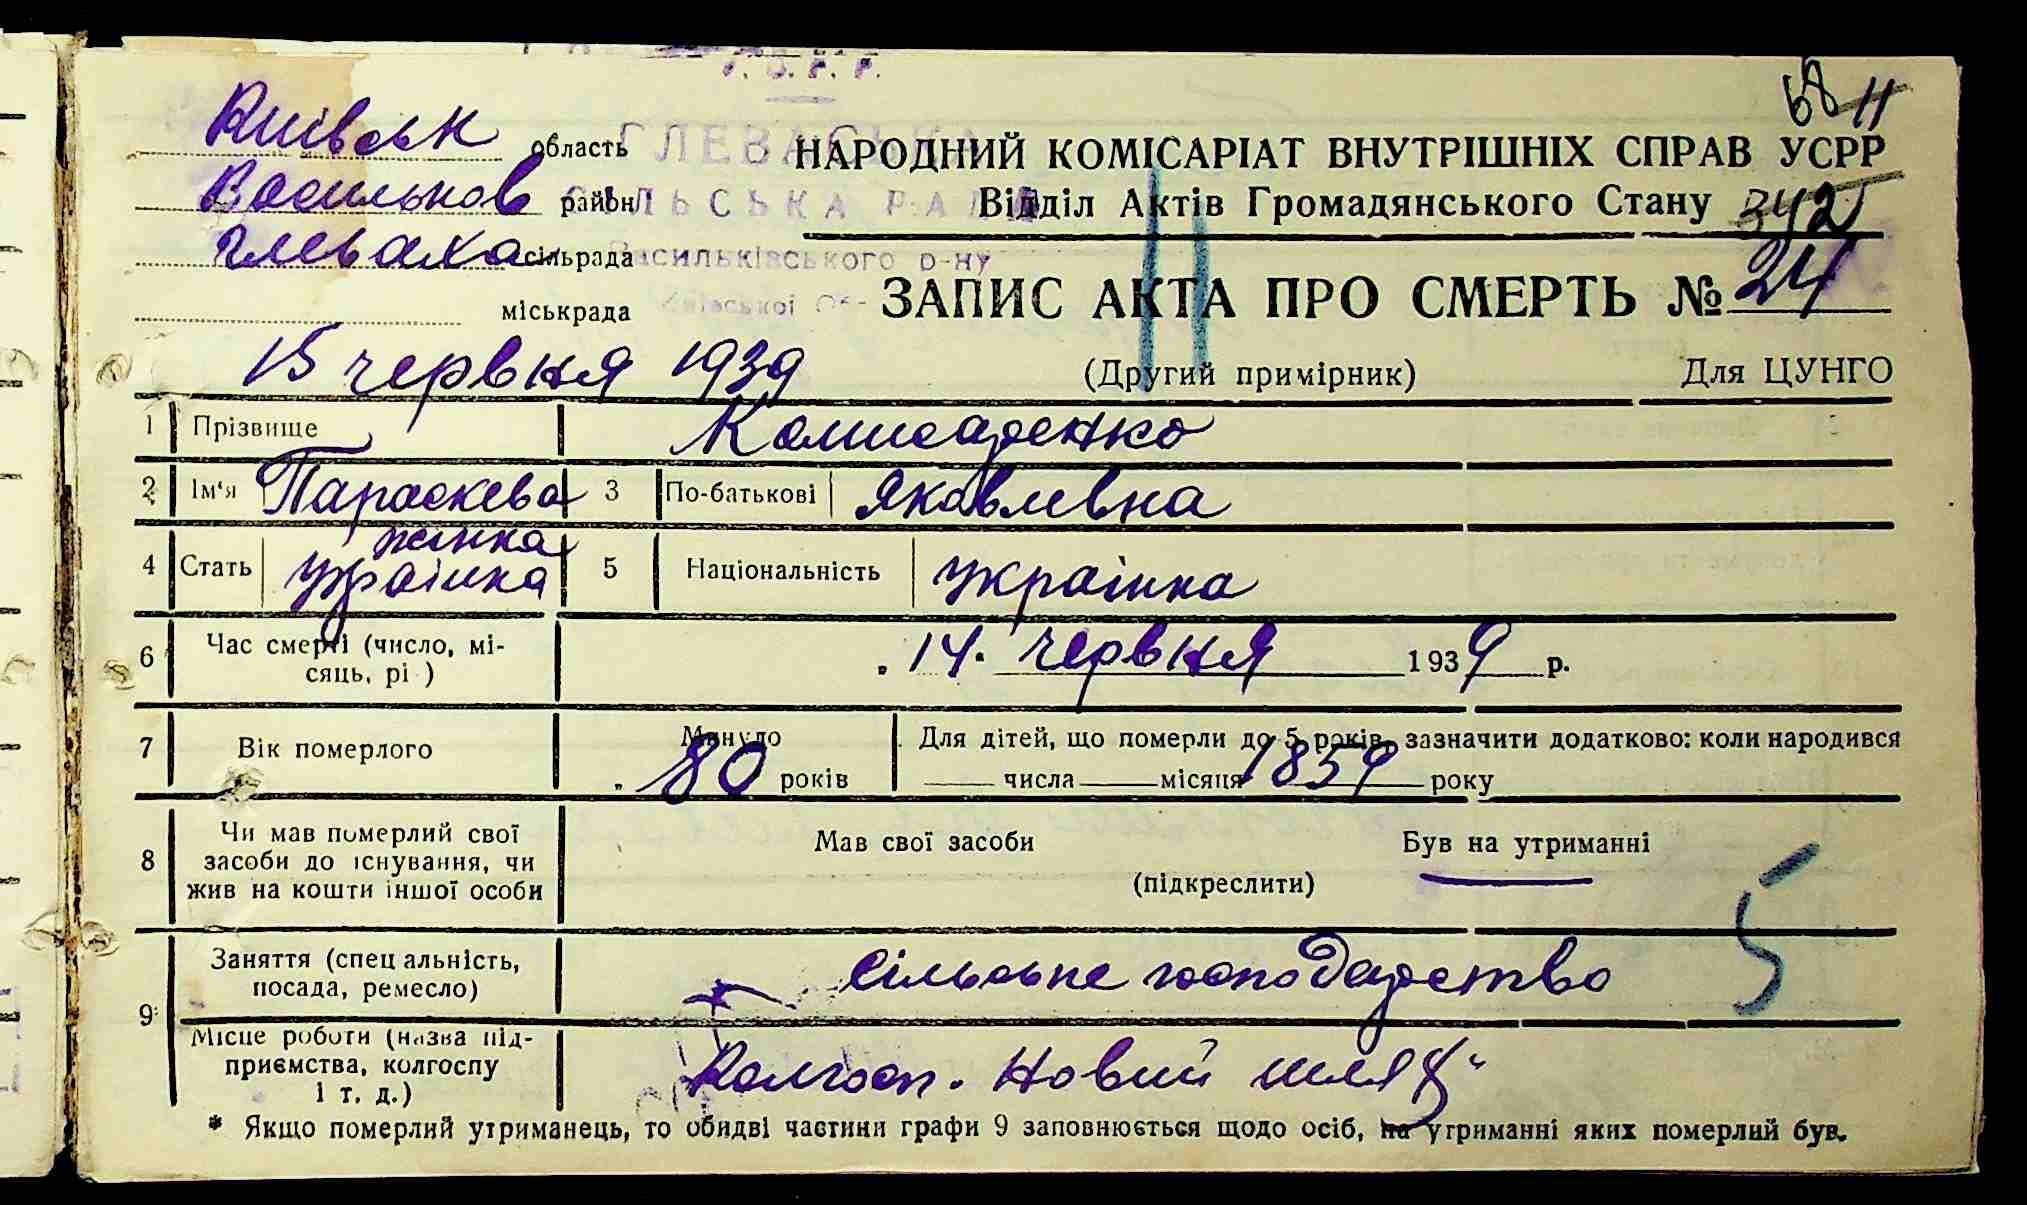 У. С. Р. Р.
68 11
Київськ область ГЛЕВАСЬКА НАРОДНИЙ КОМІСАРІАТ ВНУТРІШНІХ СПРАВ УСРР
Васильков район СІЛЬСЬКА РАДА Відділ Актів Громадянського Стану 342
Глеваха сільрада Васильківського р-ну
міськрада Київської Об- ЗАПИС АКТА ПРО СМЕРТЬ № 24
15 червня 1939 (Другий примірник) Для ЦУНГО
1 Прізвище Комисаренко
2 Ім'я Параскева 3 По-батькові Яковлевна
жінка
4 Стать українка 5 Національність українка
6 Час смерті (число, мі-
сяць, рі ) 14. червня 1939 р.
7 Вік померлого Минуло 80 років Для дітей, що померли до 5 років, зазначити додатково: коли народився
числа місяця 1859 року
8 Чи мав померлий свої
засоби до існування, чи
жив на кошти іншої особи
Мав свої засоби Був на утриманні
(підкреслити)
5
9 Заняття (спец альність,
посада, ремесло) сільське господарство
Місце роботи (назва під-
приємства, колгоспу
і т. д.) Колгосп. Новий шлях"
* Якщо померлий утриманець, то обидві частини графи 9 заповнюється щодо осіб, на утриманні яких померлий був.